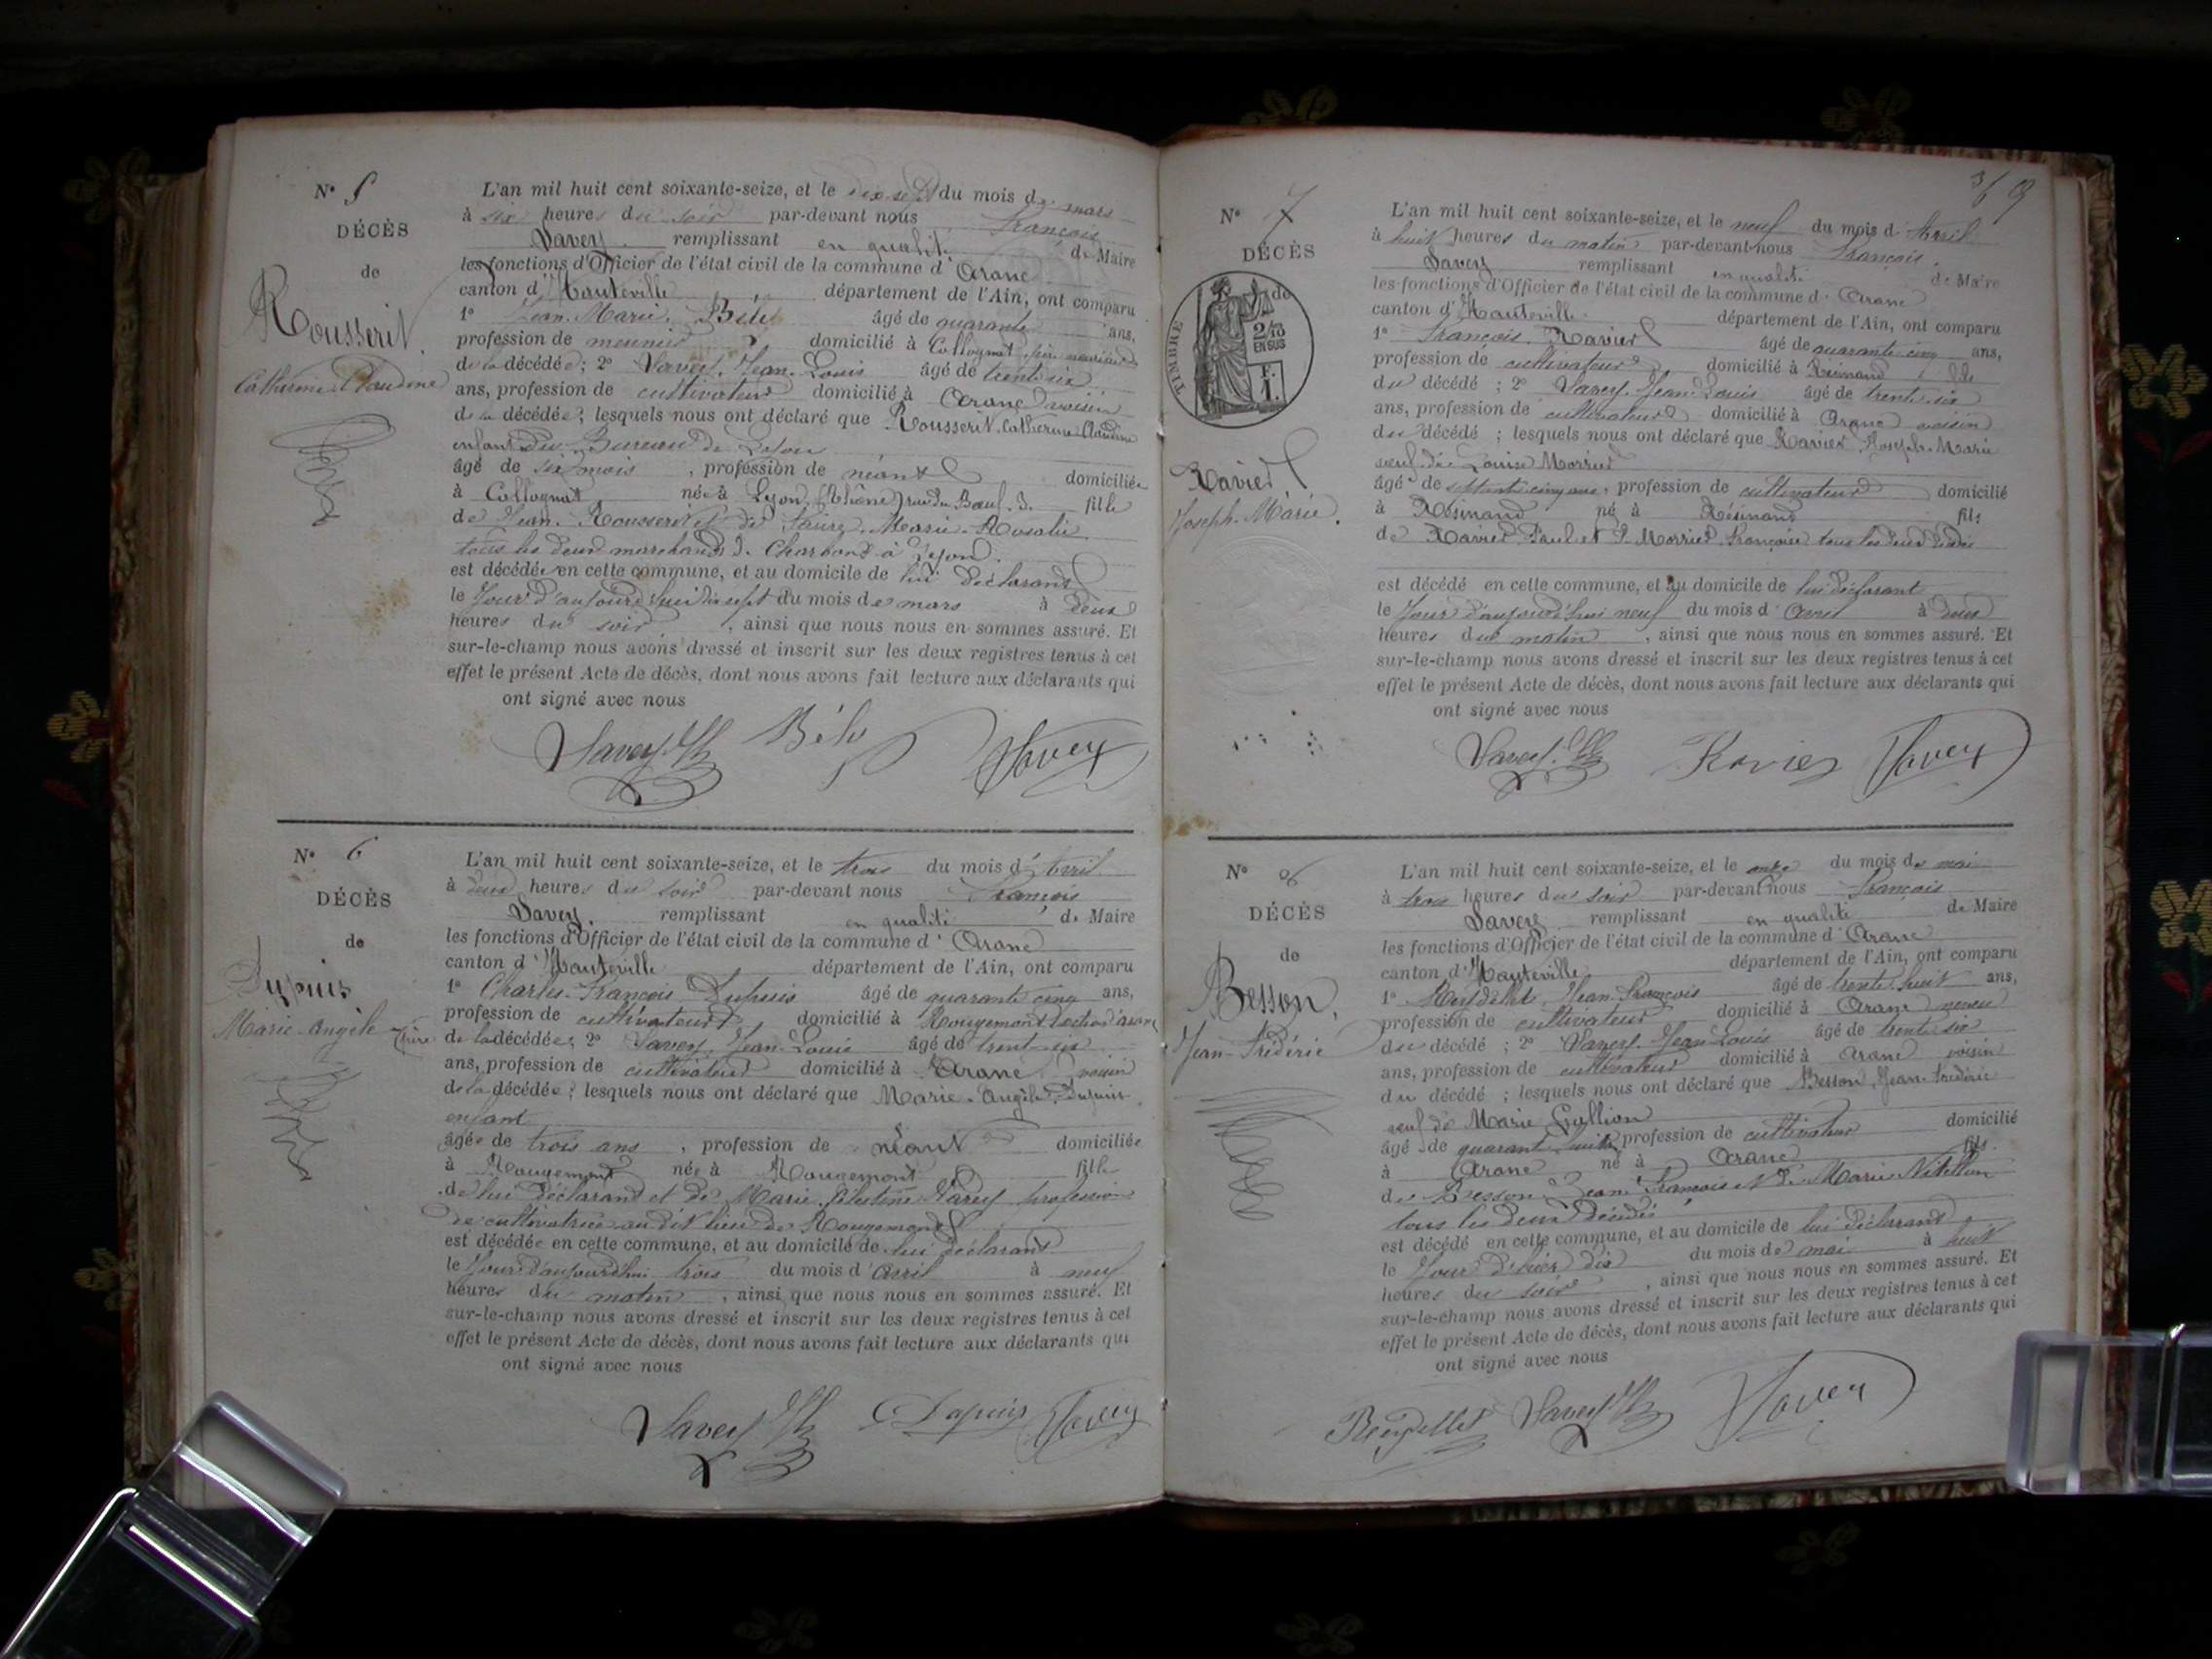 N° 5
DÉCÈS
de
Rousserit
Catherine Claudine
L'an mil huit cent soixante-seize, et le dix-sept du mois de mars
à six heures du soir par-devant nous François
Savey remplissant en qualité de Maire
les fonctions d'Officier de l'état civil de la commune d'Arane
canton d'Hauteville département de l'Ain, ont comparu
1° Jean-Marie Bély âgé de quarante ans,
profession de meunier domicilié à Collognat
de la décédée; 2° Savey, Jean-Louis âgé de trente six
ans, profession de cultivateur domicilié à Arane voisin
de la décédée; lesquels nous ont déclaré que Rousserit Catherine Claudine
enfant du Bureau de Lyon
âgé de six mois, profession de néant domiciliée
à Collognat née à Lyon (Rhône) rue du Bœuf. 3. fille
de Jean Rousserit et de Marie-Rosalie
tous les deux marchands de Charbond à Lyon
est décédée en cette commune, et au domicile de lui déclarant
le Jour d'aujourd'hui dix sept du mois de mars à deux
heures du soir, ainsi que nous nous en sommes assuré. Et
sur-le-champ nous avons dressé et inscrit sur les deux registres tenus à cet
effet le présent Acte de décès, dont nous avons fait lecture aux déclarants qui
ont signé avec nous
Savey JL Bély Savey
N° 6
DÉCÈS
de
Dupuis
Marie-Angèle
L'an mil huit cent soixante-seize, et le trois du mois d'Avril
à deux heures du soir par-devant nous François
Savey. remplissant en qualité de Maire
les fonctions d'Officier de l'état civil de la commune d'Arane
canton d'Hauteville département de l'Ain, ont comparu
1° Charles-François Dupuis âgé de quarante cinq ans,
profession de cultivateur domicilié à Rougemont section d'Arane
de la décédée; 2° Savey, Jean-Louis âgé de trente six
ans, profession de cultivateur domicilié à Arane voisin
de la décédée; lesquels nous ont déclaré que Marie-Angèle Dupuis
enfant
âgée de trois ans, profession de néant domiciliée
à Rougemont née à Rougemont fille
de lui déclarant et de Marie Célestine Savey profession
de cultivatrice au dit lieu de Rougemont
est décédée en cette commune, et au domicile de lui déclarant
le Jour d'aujourd'hui trois du mois d'Avril à neuf
heures du matin, ainsi que nous nous en sommes assuré. Et
sur-le-champ nous avons dressé et inscrit sur les deux registres tenus à cet
effet le présent Acte de décès, dont nous avons fait lecture aux déclarants qui
ont signé avec nous
Savey JL Dupuis Savey
N° 7
DÉCÈS
de
TIMBRE
2/10
EN SUS
F.
1.
Ravier
Joseph-Marie.
L'an mil huit cent soixante-seize, et le neuf du mois d'Avril
à huit heures du matin par-devant nous François
Savey remplissant en qualité de Maire
les fonctions d'Officier de l'état civil de la commune d'Arane
canton d'Hauteville département de l'Ain, ont comparu
1° François Ravier âgé de quarante cinq ans,
profession de cultivateur domicilié à Résinand fils
du décédé; 2° Savey, Jean-Louis âgé de trente six
ans, profession de cultivateur domicilié à Arane voisin
du décédé; lesquels nous ont déclaré que Ravier Joseph-Marie
veuf de Louise Morrier
âgé de septante cinq ans, profession de cultivateur domicilié
à Résinand né à Résinand fils
de Ravier Paul et d. Morrier Françoise tous les deux décédés
est décédé en cette commune, et au domicile de lui déclarant
le Jour d'aujourd'hui neuf du mois d'Avril à deux
heures du matin, ainsi que nous nous en sommes assuré. Et
sur-le-champ nous avons dressé et inscrit sur les deux registres tenus à cet
effet le présent Acte de décès, dont nous avons fait lecture aux déclarants qui
ont signé avec nous
Savey JL Ravier Savey
N° 8
DÉCÈS
de
Besson,
Jean-Frédéric
L'an mil huit cent soixante-seize, et le onze du mois de mai
à trois heures du soir par-devant nous François
Savey remplissant en qualité de Maire
les fonctions d'Officier de l'état civil de la commune d'Arane
canton d'Hauteville département de l'Ain, ont comparu
1° Jean-François âgé de trente huit ans,
profession de cultivateur domicilié à Arane neveu
du décédé; 2° Savey, Jean-Louis âgé de trente six
ans, profession de cultivateur domicilié à Arane voisin
du décédé; lesquels nous ont déclaré que Besson, Jean-Frédéric
veuf de Marie Gullion
âgé de quarante huit, profession de cultivateur domicilié
à Arane né à Arane fils
de Besson Jean-François et de Marie
tous les deux décédés
est décédé en cette commune, et au domicile de lui déclarant
le Jour d'hier dix du mois de mai à huit
heures du soir, ainsi que nous nous en sommes assuré. Et
sur-le-champ nous avons dressé et inscrit sur les deux registres tenus à cet
effet le présent Acte de décès, dont nous avons fait lecture aux déclarants qui
ont signé avec nous
Savey JL Savey